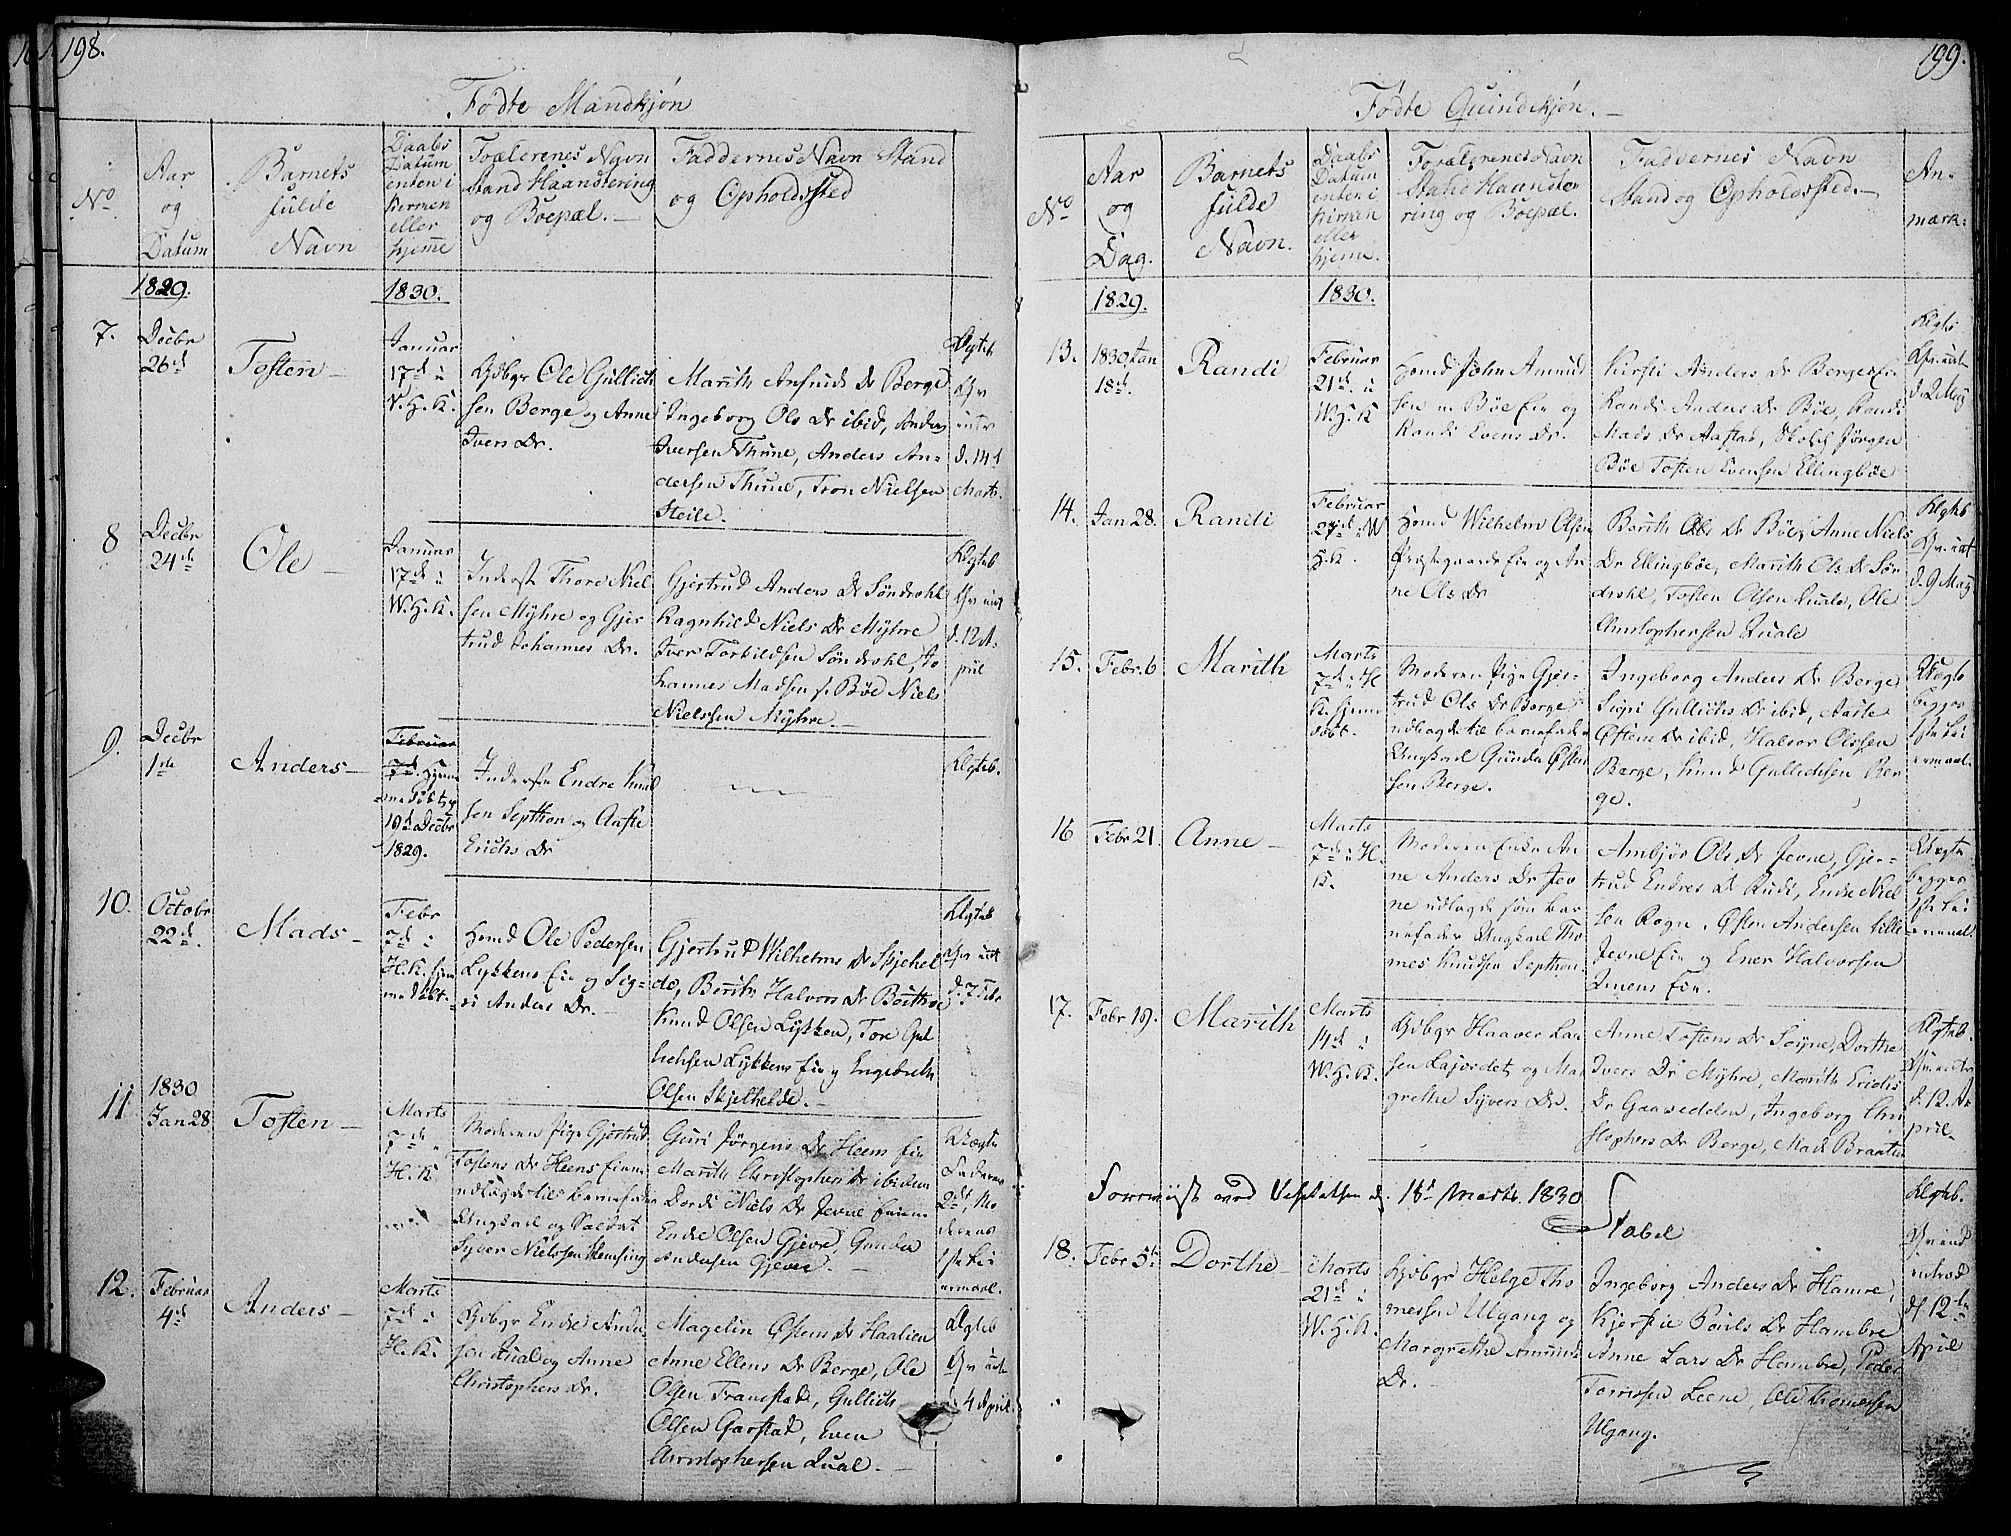 198.
Fødte Mandkjøn
No
Aar
og
Datum
Barnets
fulde
Navn
Daabs
Datum
enten i
Kirken
eller
hjeme
Forælerenes Navn
Stand Haandtering
og Boepæl.
Faddernes Navn Stand
og Opholdssted
1829.
1830.
7.
Decbr
26d
Tosten
Januar
17d i
V.H.K.
Gdbgr Ole Gullich
sen Berge og Anne
Ivers Dr.
Marith Anfinds Dr Berge
Ingeborg Ols Dr ibid, Anders
Iversen Thune, Anders An-
dersen Thune, Tron Nielsen
Steile.
Ægteb
d. 14d
Marts.
8
Decbr
24de
Ole
Januar
17de i
W.H.K.
Inderst Thore Niel
sen Myhre og Gjer
trud Johannes Dr.
Gjertrud Anders Dr Søndrohl
Ragnhild Niels Dr Myhre
Iver Torkildsen Søndrohl Jo
hannes Madsen s. Bøe Niels
Nielssen Myhre.
Ægteb
d. 12 A-
pril
9.
Decbr
1ste
Anders
Februar
7d. hjem
me døbt
19d Decbr
1829.
Inderste Endre Knud
sen Septhon og Aaste
Erichs Dr
Ægteb.
10.
Octobr
22d.
Mads
Febr
7d i
H.K. hjem
me døbt
Homd Ole Pedersen
Lykkens Eie og Sig-
ri Anders Dr.
Gjertrud Wilhelms Dr Skjehel
de, Berith Halvors Dr
Knud Olsen Lykken, Tore Gul
lichsen Lykkens Eie og Engebreth
Olsen Skjelhelde.
Ægteb
d. 7 Febr
11
1830
Jan 28
Tosten
Marts
7de i
H.K.
Moderen Pige Gjertrud
Tostens Dr Heens Eie
udlagde til Barnefader
Ungkarl og Soldat
Syver Nielssen Remsing
Guri Jørgens Dr Heens Eie
Marith Christophers Dr ibidem
Dordi Niels Dr Jevne Eiem
Endre Olsen Gjevre, Gunder
Andersen Gjevre.
Uægte
Faderens
2det, Mo
derens
1ste Lei
ermaal.
12.
Februar
4d
Anders
Marts
7de i
H.K.
Gdbgr Endre Ander
sen Qual og Anne
Christophers Dr.
Magelin Østens Dr Haalien
Anne Ellens Dr Berge, Ole
Olsen Tranestad, Gullich
Olsen Garstad, Even
Christophersen Qual.
Ægteb
4 April.
199.
Fødte Qvindekjøn.
No
Aar
og
Dag.
Barnets
fulde
Navn.
Daabs
Datum
enten i
Kirken
eller
hjeme.
Forælerenes Navn
Stand Haandte
ring og Boepæl.
Faddernes Navn
Stand og Opholdssted.
An-
mærk:
1829.
1830.
13.
1830 Jan
18d.
Randi
Februar
21d. i
W.H.K
Homd John Amund
sen Bøe Eie og
Randi Evens Dr.
Kirsti Anders Dr Berges Eie
Randi Anders Dr Bøe, Randi
Mads Dr Aastad, Jørgen
Bøe Tosten Evensen Ellingbøe
Ægteb
d. 2 Maj
14.
Jan 28.
Randi
Februar
27d i W
H.K.
Homd Wilhelm Olsen
Præstgaards Eie og An
ne Ols Dr
Berith Ols Dr Bøe, Anne Niels
Dr Ellingbøe, Marith Ols Dr Søn
drohl, Tosten Olsen Quale, Ole
Christophersen Quale
Ægteb
d. 9 Maj
15.
Febr. 6
Marith
Marts
7de i H
K. hjemme
døbt.
Moderen Pige Gjer-
trud Ols Dr Berge
udlagde til Barnefader
Ungkarl Gunder Østen
sen Berge.
Ingeborg Anders Dr Berge
Sigri Gullichs Dr ibid, Aaste
Østens Dr ibid, Halvor Olssen
Berge, Knud Gullichsen Ber
ge.
Uægte
begges
1ste Lei
ermaal
16
Febr 21.
Anne
Marts
7de i H.
K.
Moderen Enke An
ne Anders Dr Jev
ne udlagde som Bar
nefader Ungkarl Tho
mes Knudsen Septhon.
Ambjør Ols Dr Jevne, Gjer-
trud Endres Dr Rudi, Endre Niel
sen Rogn, Østen Andersen lille
Jevne Eie og Ener Halvorsen
Eie.
Uægte
begges
1ste Lei
ermaal.
17.
Febr 19.
Marith
Marts
14d i
W.H.K.
Gdbgr Haaver Lar
sen Lajordet og Mar
grethe Syvers Dr.
Anne Tostens Dr Søyne, Dorthe
Ivers Dr Myhre, Marith Erichs
Dr Gaasedelen, Ingeborg Chri
stophers Dr Berge, Mads Braaten
Ægteb.
d. 12. A
pril
Foreviist ved Visitatsen d. 18d Marts 1830
Stabel
18.
Febr 5te
Dorthe
Marts
21d i
W.H.K.
Gdbgr Helge Tho
messen Ulgang og
Margrethe Amunds
Dr.
Ingeborg Anders Dr Hamre,
Kjerstie Pouls Dr Hambre
Anne Lars Dr Hambre, Peder
Tomssen Leene, Ole Thomessen
Ulgang.
Ægteb.
d. 12te
April